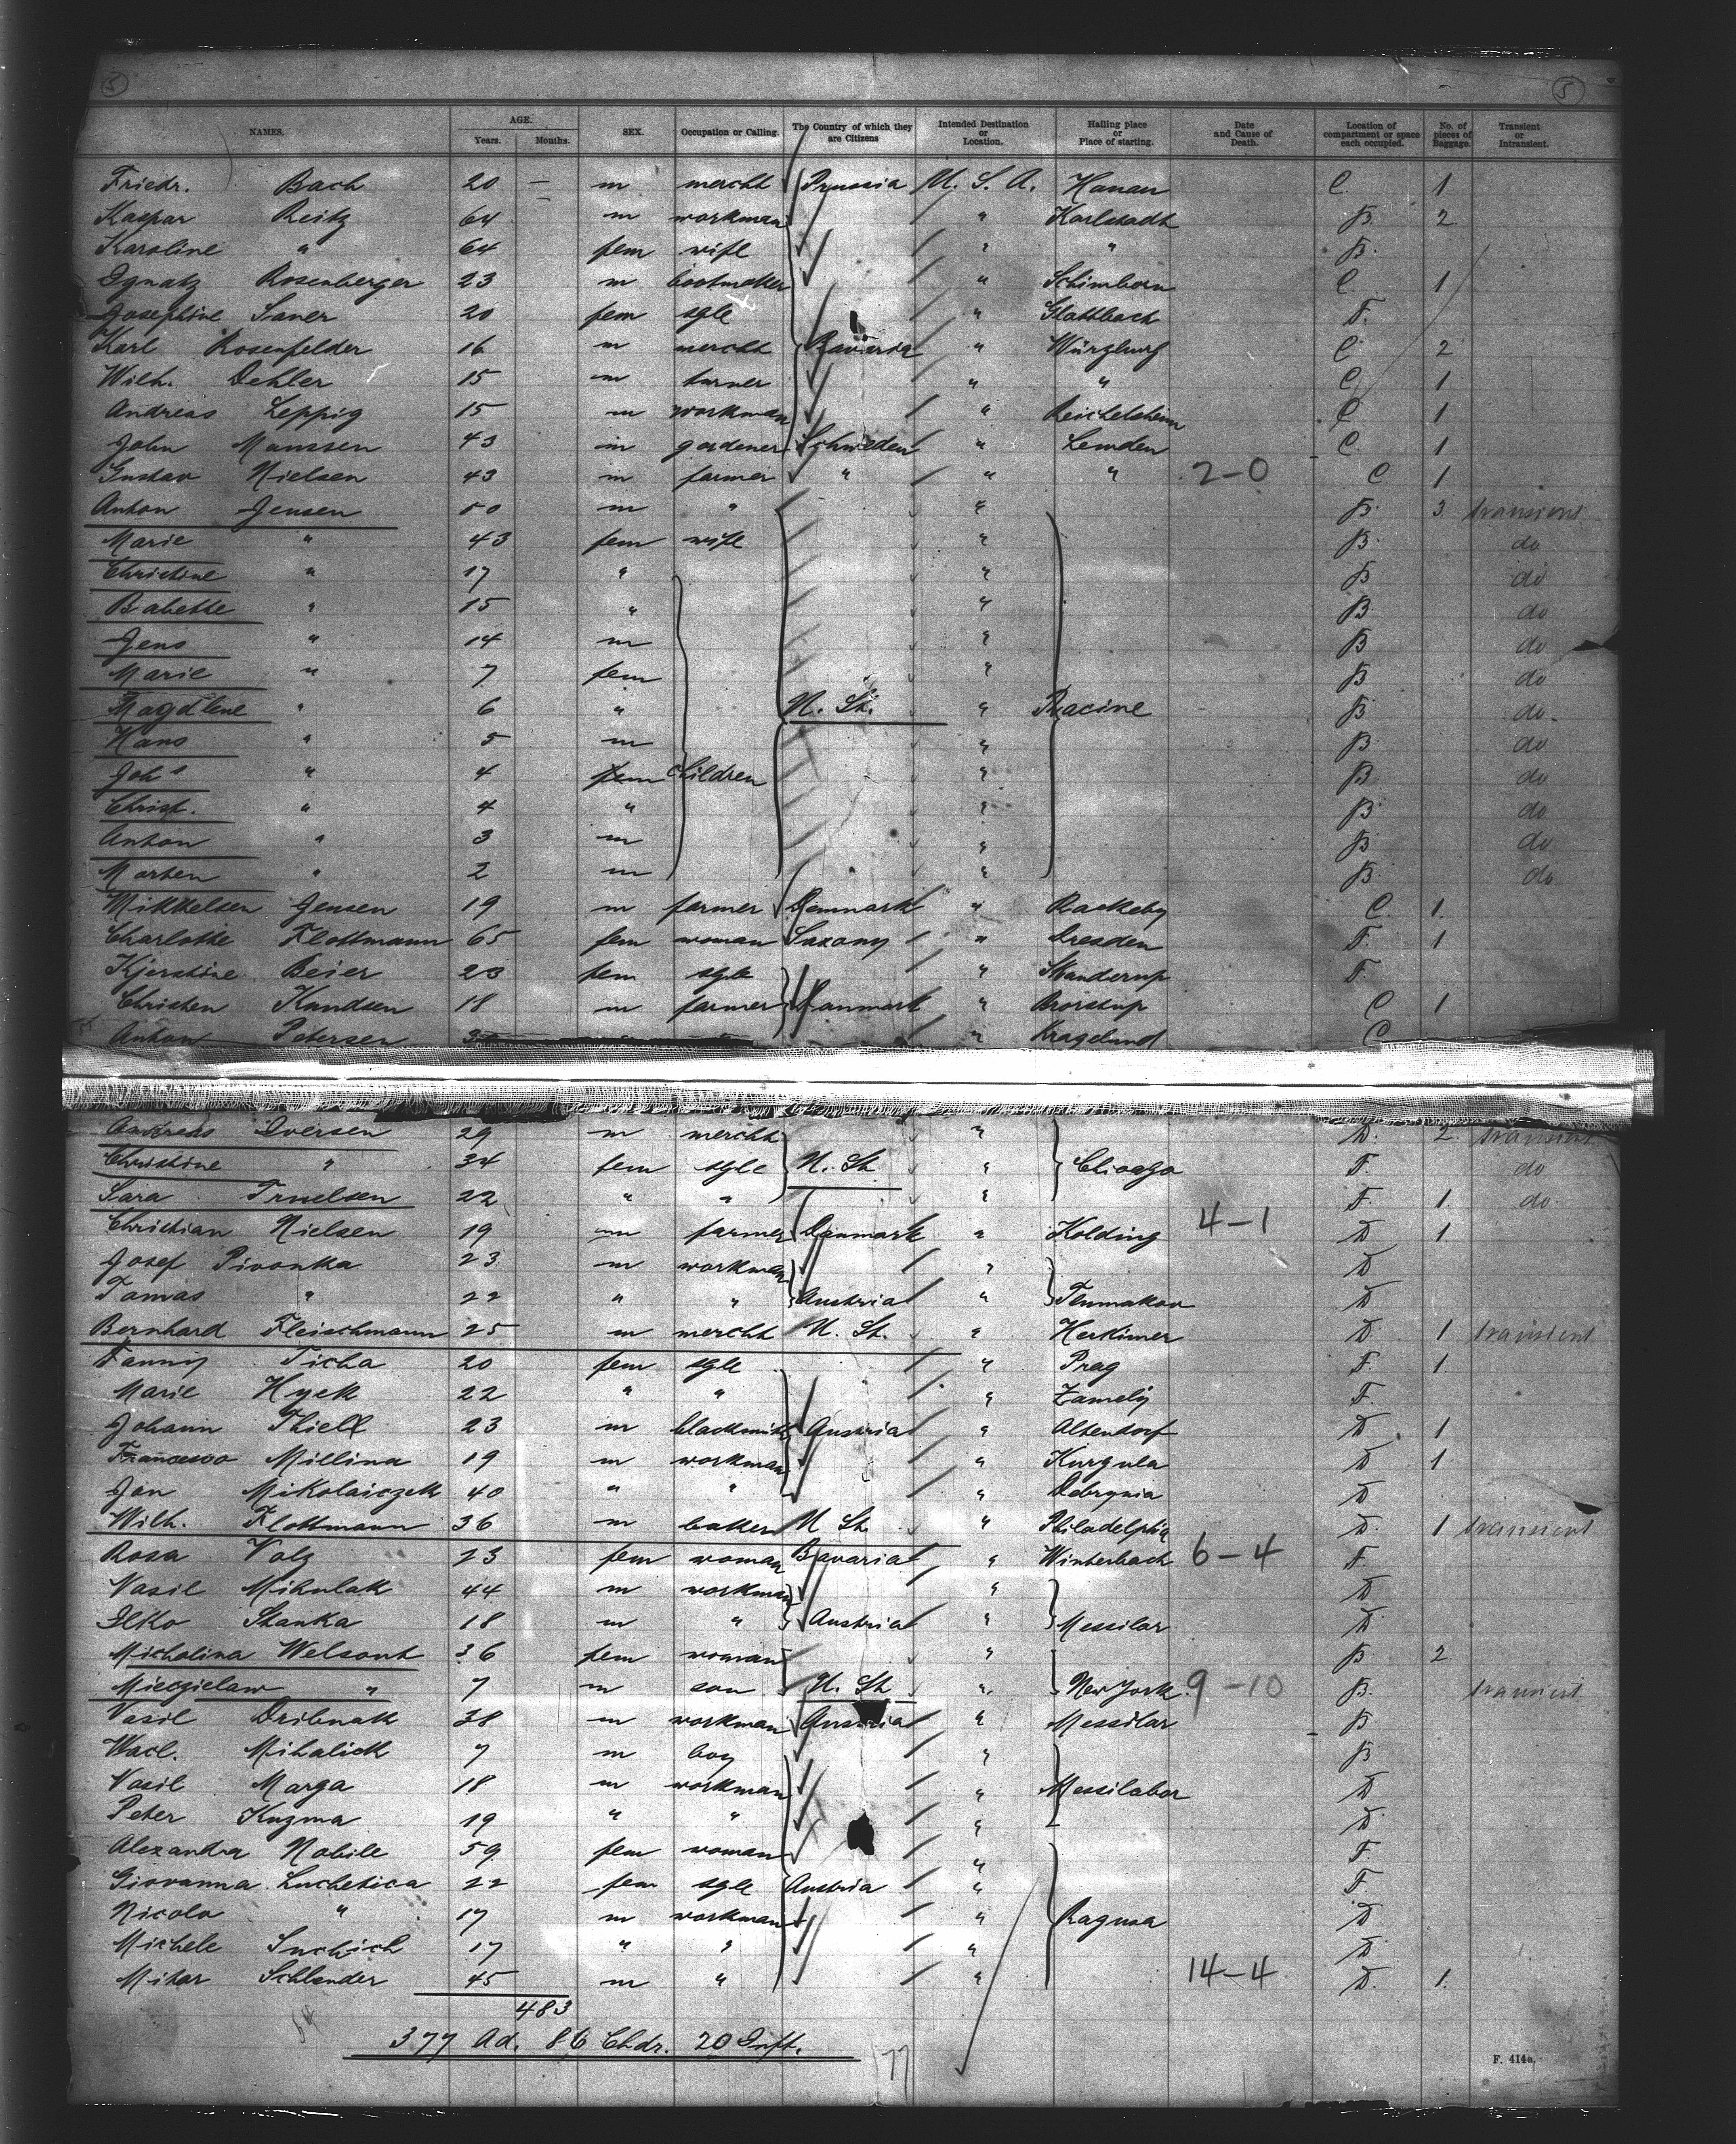 5 5
NAMES. AGE. Years. Months. SEX. Occupation or Calling. The Country of which they are Citizens Intended Destination or Location. Hailing place or Place of starting. Date and Cause of Death. Location of compartment or space each occupied. No. of pieces of Baggage. Transient or Intransient.
Friedr. Bach 20 — m mercht Prussia U. S. A. Hanau C. 1
Kaspar Reitz 64 m workman " Karlstadt B. 2
Karoline " 64 fem wife " " B.
Ignatz Rosenberger 23 m bootmaker " Schimborn C 1
Josephine Sauer 20 fem sgle " Glattbach F.
Karl Rosenfelder 16 m mercht Bavaria " Würzburg C 2
Wilh. Oehler 15 m turner " " C 1
Andreas Leppig 15 m workman " Reichelsheim C 1
John Manssen 43 m gardener Schweden " Lemden C. 1
Gustav Nielsen 43 m farmer " " " 2-0 C 1
Anton Jensen 50 m " " B. 3 transient
Marie " 43 fem wife " B. do
Christine " 17 " " B do
Babette " 15 " " B. do
Jens " 14 m " B do
Marie " 7 fem " B do
Magdlene " 6 " U. St. " Racine B do
Hans " 5 m " B do
Joh's " 4 fem children " B do
Christ. " 4 " " B do
Anton " 3 m " B do
Morten " 2 m " B. do
Mikkelsen Jensen 19 m farmer Denmark " Rackeby C. 1.
Charlotte Flottmann 65 fem woman Saxony " Dresden F. 1
Kjerstine Beier 23 fem sgle " Skanderup F
Christen Knudsen 18 m farmer Danmark " Brorstrup C 1
Anton Petersen 3 " Kragelund C
Andreas Iversen 29 m mercht " D. 2 transient
Christine " 34 fem sgle U. St " Chicago F. do
Sara Truelsen 22 " " " F. 1. do
Christian Nielsen 19 m farmer Danmark " Kolding 4-1 D 1.
Josef Pivonka 23 m workman " D
Tomas " 22 " " Austria " D
Bernhard Fleischmann 25 m mercht U. St. " Herkimer D. 1 transient
Fanny Ticha 20 fem sgle " Prag F. 1.
Marie Hyek 22 " " " F.
Johann Thiell 23 m blacksmith Austria " Altendorf D 1
Francesco Millina 19 m workman " Kurgula D 1
Jan Mikolaiczek 40 " " " D
Wilh. Flottmann 36 m baker U St. " Philadelphia D. 1 transient
Rosa Volz 23 fem woman Bavaria " Winterbach 6-4 F.
Vasil Mihulak 44 m workman " D
Ilko Stanka 18 m " Austria " Messilar D
Micholina Welsont 36 fem woman " B. 2
Mieczielaw " 7 m son U. St " New York 9-10 B. transient
Vasil Dribnak 38 m workman Austria " Messilar B
Wacl. Mihalick 7 m boy " B
Vasil Marga 18 m workman " Messilabor D
Peter Kuzma 19 " " " D
Alexandra Nobile 59 fem woman " F.
Giovanna Luchetica 22 fem sgle Austria " F.
Nicolo " 17 m workman " Ragusa D
Michele Suchich 17 " " " D
Mitar Schlender 45 m " " 14-4 D. 1.
483
377 Ad. 86 Chdr. 20 Inft.
77
F. 414a.